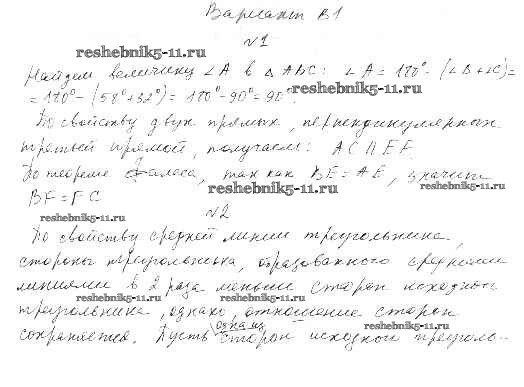 Вариант В1
№1
reshebnik5-11.ru
Найдем величину ∠A в △ABC: ∠A = 180° - (∠B+∠C)=
= 180° - (58°+32°) = 180° - 90° = 90°.
reshebnik5-11.ru
По свойству двух прямых, перпендикулярных
третьей прямой, получаем: AC ∥ EF.
По теореме Фалеса, так как BE = AE, значит
reshebnik5-11.ru
reshebnik5-11.ru
BF = FC
reshebnik5-11.ru
№2
По свойству средней линии треугольника,
стороны треугольника, образованного средними
линиями в 2 раза меньше сторон исходного
reshebnik5-11.ru
reshebnik5-11.ru
треугольника, однако, отношение сторон
одна из
reshebnik5-11.ru
сохраняется. Пусть сторон исходного треуголь-